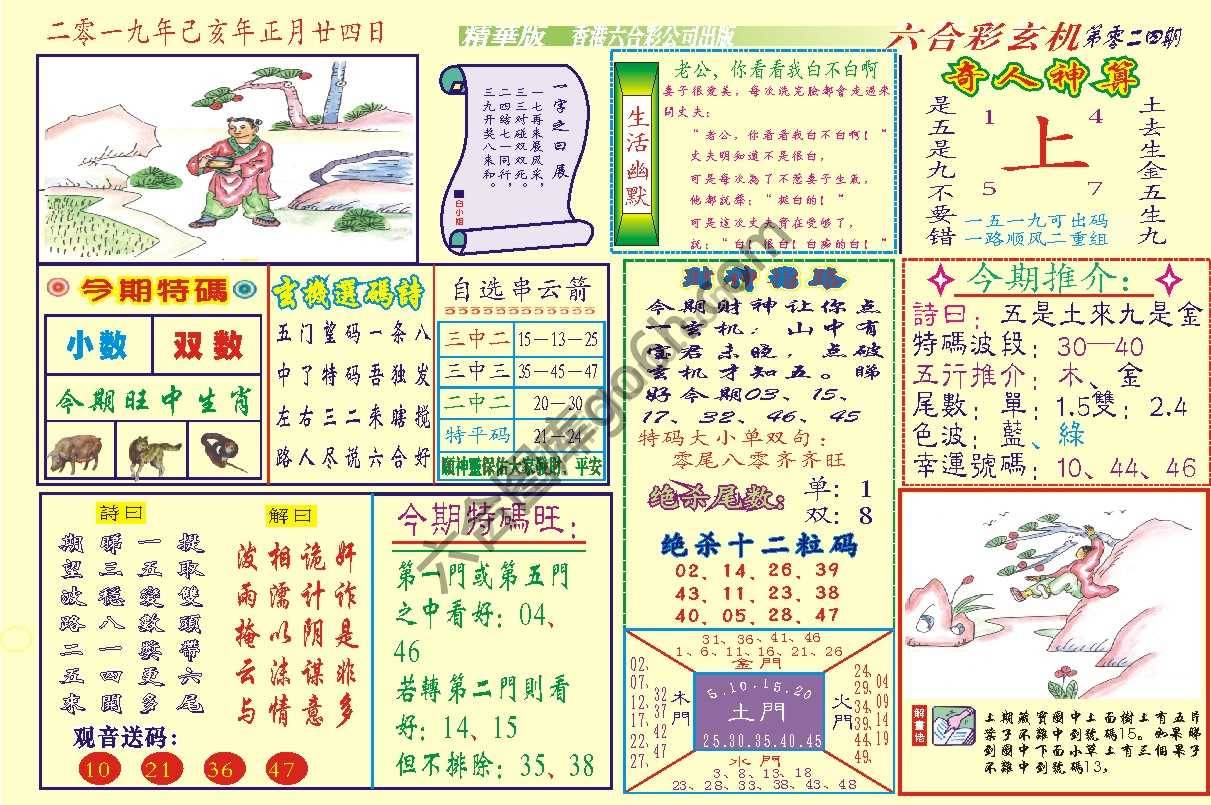 二零一九年己亥年正月廿四日
精華版 香港六合彩公司出版
六合彩玄机 第零二四期
一字之曰展
一七再来展风采,
三三对碰双双死。
二四三瞎七八一同双,
三九开奖八来和行。
白小姐
生活幽默
老公,你看看我白不白啊
妻子很愛美,每次洗完臉都會走過來
問丈夫:
“老公,你看看我白不白啊!”
丈夫明知道不是很白,
可是每次為了不惹妻子生氣,
他都說聲:“挺白的!”
可是這次丈夫實在受够了,
說:“白!很白!白痴的白!”
奇人神算
是五是九不要错
1 4
上
5 7
土去生金五生九
一五一九可出码
一路顺风二重组
今期特碼
小数 双数
今期旺中生肖
玄機選碼詩
五门望码一条八
中了特码吾独发
左右三二来瞎搅
路人尽说六合好
自选串云箭
三中二 15—13—25
三中三 35—45—47
二中二 20—30
特平码 21—24
願神靈保佑大家發財、平安
財神指路
今期财神让你点
一玄机:山中有
宝君未晓,点破
玄机才知五。睇
好今期03、15、
17、32、46、45
特码大小单双句:
零尾八零齐齐旺
绝杀尾数: 单:1
双:8
绝杀十二粒码
02、14、26、39
43、11、23、38
40、05、28、47
今期推介:
詩曰:五是土來九是金
特碼波段:30—40
五行推介:木、金
尾數:單:1.5雙:2.4
色波:藍、綠
幸運號碼:10、44、46
詩曰
期睇一提
望三五取
波穩變雙
路八數頭
二一獎帶
五四更六
来開多尾
解曰
波相诡奸
雨濡计诈
掩以阴是
云沫谋非
与情意多
观音送码:
10 21 36 47
今期特碼旺:
第一門或第五門
之中看好:04、
46
若轉第二門則看
好:14、15
但不排除:35、38
31、36、41、46
1、6、11、16、21、26
金門
02、07、12、17、22、27、
32、37、42、47
木門
5.10.15.20
土門
25.30.35.40.45
火門
24、29、34、39、44、49、
04、09、14、19
水門
3、8、13、18
23、28、33、38、43、48
解畫悟
上期藏寶圖中上面樹上有五片
葉子不難中到號碼15。如果睇
到圖中下面小草上有三個果子
不難中到號碼13。
六合图库go66h.com